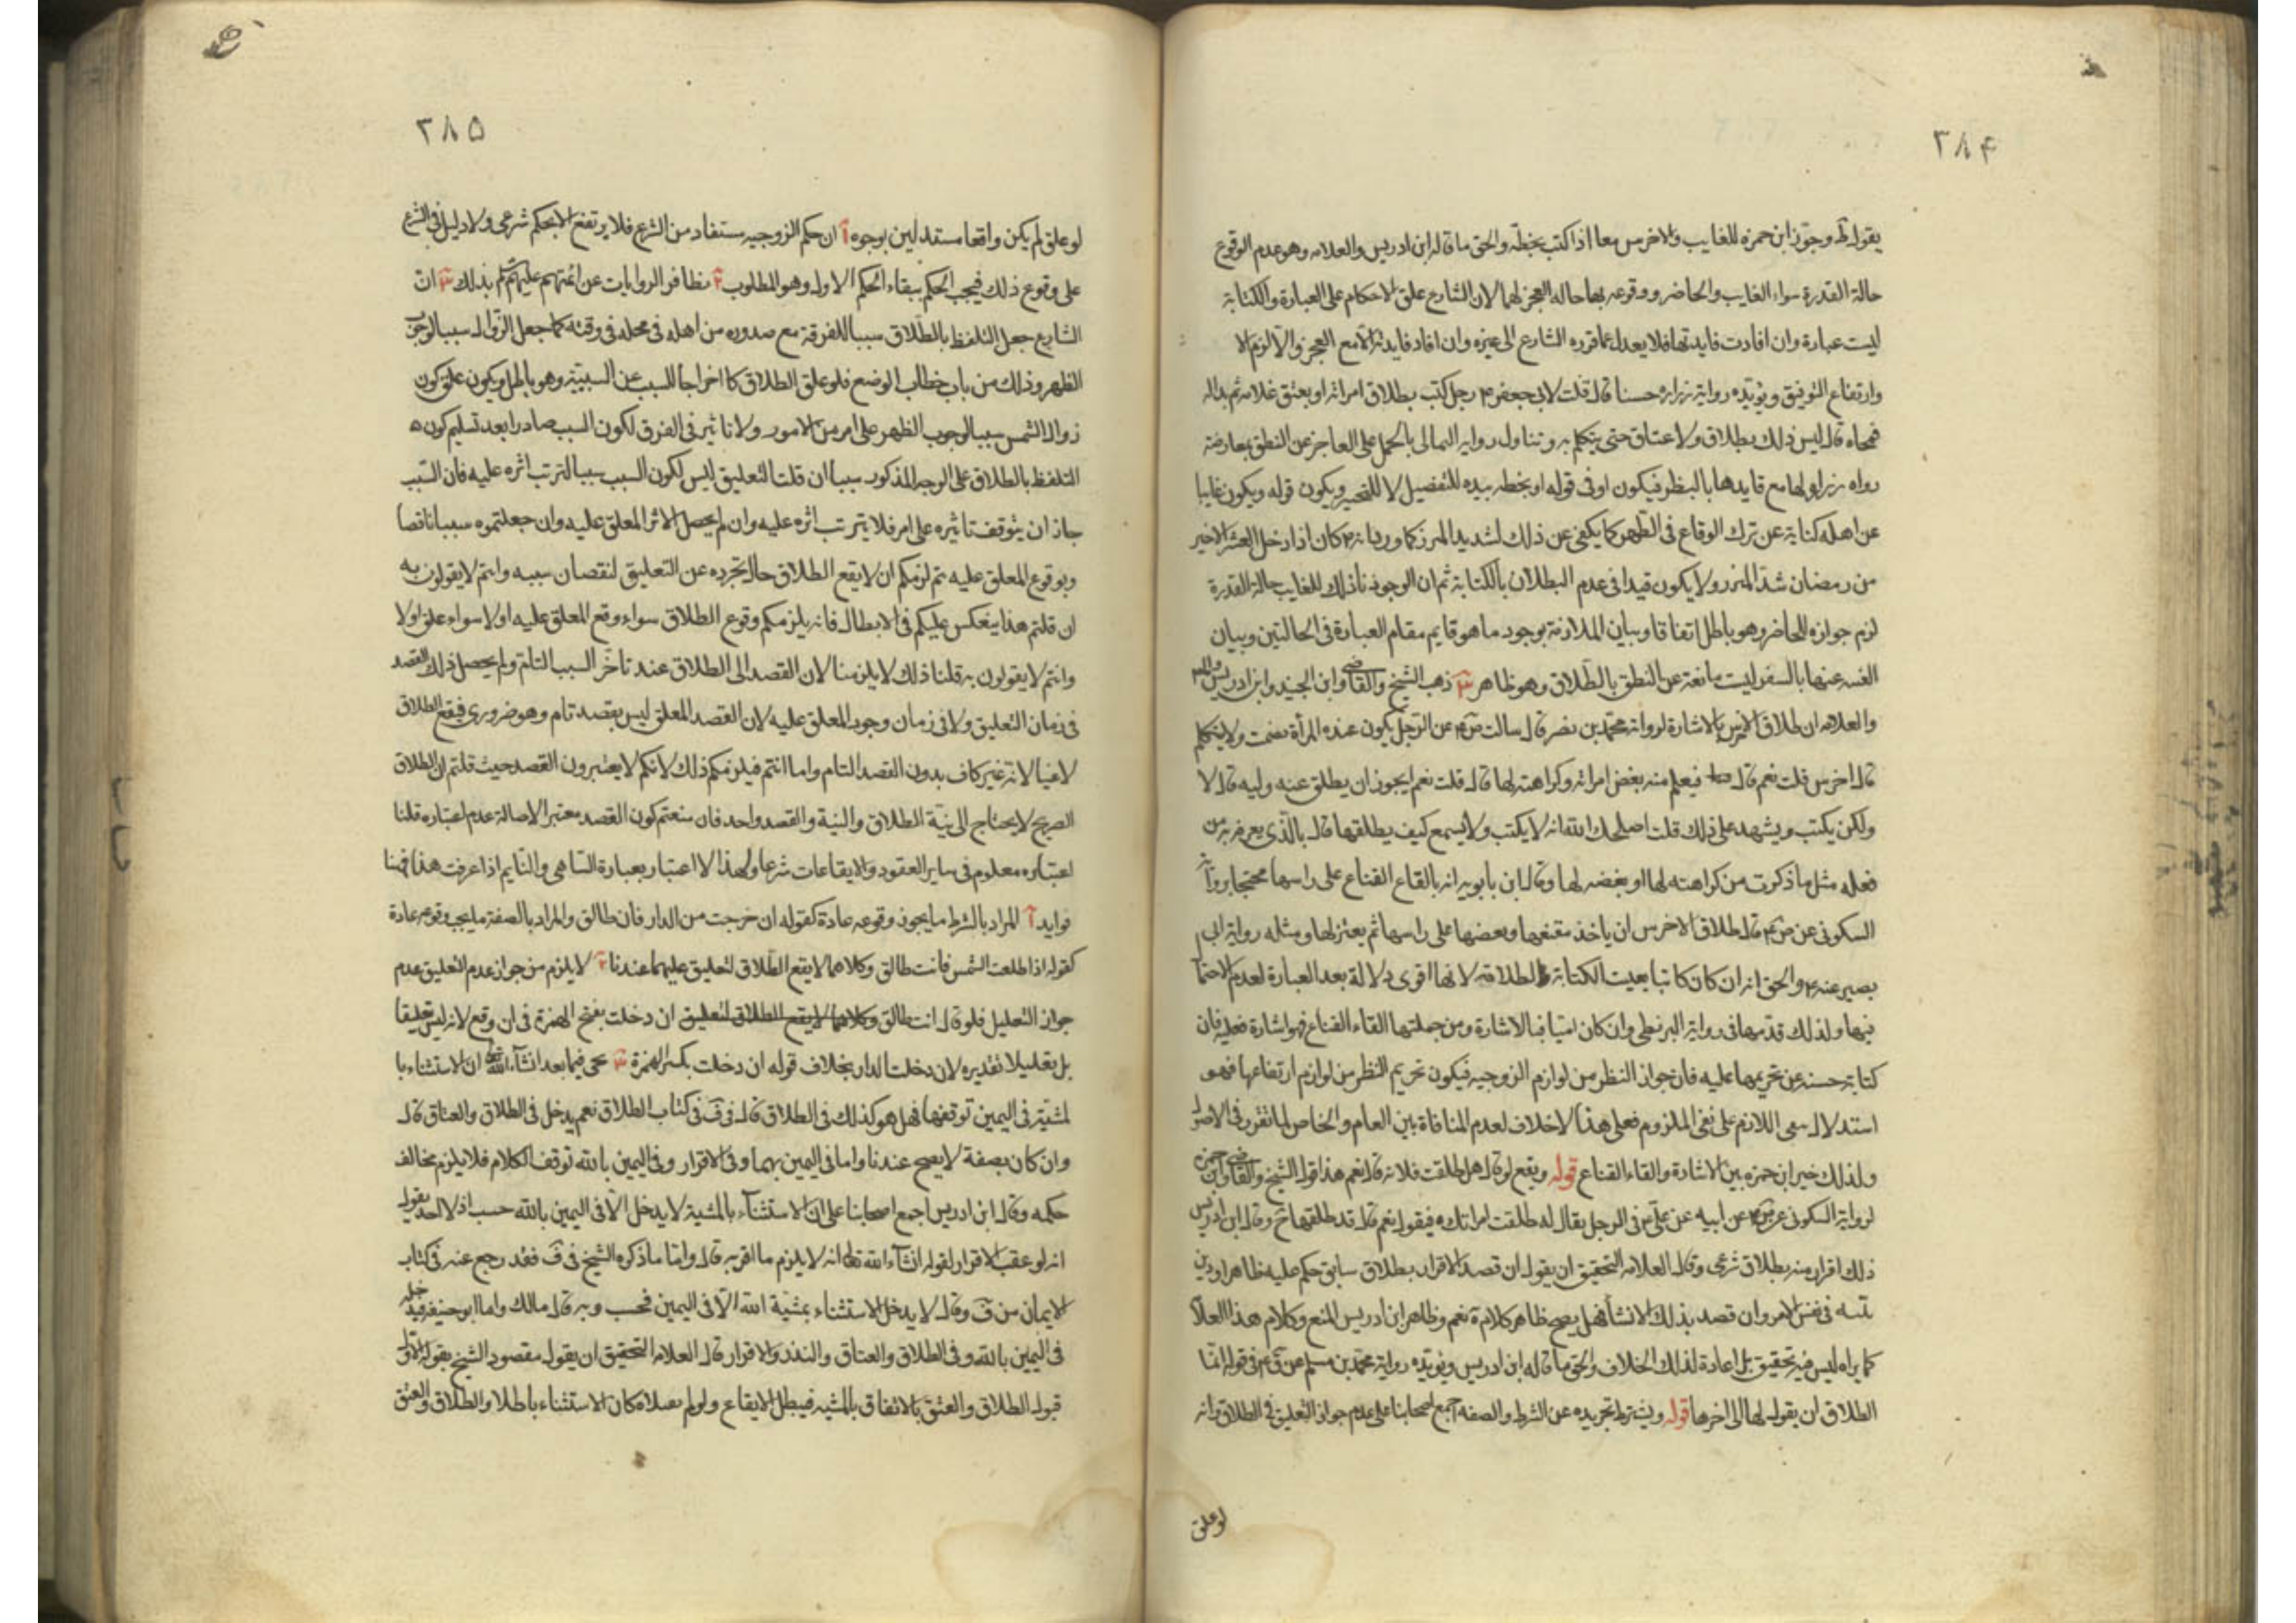 ٣٨۴
يقوله ط وجوز ابن حمزه للغايب والاخرس معا اذا كتب بخطه والحق ما قاله ابن ادريس والعلامه وهو عدم الوقوع
حالة القدرة سواء الغايب والحاضر ووقوعه بها حالة العجز لهما لان الشارع علق الاحكام على العبارة والكتابة
ليست عبارة وان افادت فايدتها فلا يعدل عما قرره الشارع الى غيره وان افاد فايدته الا مع العجز والا لزم
وارتفاع التوفيق ويؤيده رواية زرارة حسنا قال قلت لابي جعفر ۴ رجل كتب بطلاق امراته او بعتق غلامه ثم بدا له
فمحاه قال ليس ذلك بطلاق ولا عتاق حتى يتكلم به وتناول رواية الثمالى بالحمل على العاجز عن النطق بمعارضة
رواه زرارة لها مع تايدها بالنظر فيكون او فى قوله او بخطه بيده للتفصيل لا للتخيير ويكون قوله ويكون غايبا
عن اهله كناية عن ترك الوقاع فى الطهر كما يكنى عن ذلك لشديد المئزر كما ورد انه ۴ كان اذا دخل العشر الاخير
من رمضان شد المئزر ولا يكون قيدا فى عدم البطلان بالكتابة ثم ان الوجود نا ذلك للغايب حالة القدرة
لزم جوازه للحاضر وهو باطل اتفاقا وبيان الملازمة بوجود ما هو قايم مقام العبارة فى الحالتين وبيان
عنها بالسفر ليست مانعة عن النطق بالطلاق وهو ظاهر ٣ ذهب الشيخ والقاضى وابن الجنيد وابن ادريس
والعلامه ان طلاق الاخرس بالاشارة لرواية محمد بن نصر قال سالت ض ۴ عن الرجل يكون عنده المرأة يصمت ولا يتكلم
قال اخرس قلت نعم قال فيعلم منه بغض امراته وكراهته لها قال قلت نعم ايجوز ان يطلق عنه وليه قال لا
ولكن يكتب ويشهد على ذلك قلت اصلحك الله فانه لا يكتب ولا يسمع كيف يطلقها قال بالذى يعرف به من
فعله مثل ما ذكرت من كراهته لها او بغضه لها وقال ابن بابويه انه بالقاع القناع على راسها محتجا برواية
السكونى عن ص ۴ قال طلاق الاخرس ان ياخذ مقنعها ويضعها على راسها ثم يعتزلها ومثله رواية ابى
بصير عنه ۴ والحق انه ان كان كاتبا تعينت الكتابة لطلاقه لانها اقوى دلالة بعد العبارة لعدم الاحتما
فيها ولذلك قدمها فى رواية البزنطى وان كان اميا فبالاشارة ومن جملتها القاء القناع فهو اشارة فعليه فان
كتابة حسنه عن تحريمها عليه فان جواز النظر من لوازم الزوجيه فيكون تحريم النظر من لوازم ارتفاعها فهو
استدلال بنفى اللازم على نفى الملزوم فعلى هذا لا خلاف لعدم المنافاة بين العام والخاص لما تقرر فى الاصول
ولذلك خير ابن حمزه بين الاشارة والقاء القناع قوله ويقع لو قال هل طلقت فلانة قال نعم هذا قول الشيخ والقاضى وابن حمزه
لرواية السكونى عن ص ۴ عن ابيه عن على ۴ فى الرجل يقال له طلقت امراتك فيقول نعم قال قد طلقها ح وقال ابن ادريس
ذلك اقرار منه بطلاق شرعى وقال العلامه التحقيق ان يقول ان قصد الاقرار بطلاق سابق حكم عليه ظاهرا ودين
بنيته فى نفس الامر وان قصد بذلك الانشأ فهل يصح ظاهر كلامه نعم وظاهر ابن ادريس المنع وكلام هذا العلا
كما يراه ليس فيه تحقيق بل اعادة لذلك الخلاف والحق ما قاله ابن ادريس ويؤيده رواية محمد بن مسلم عن ق ۴ فى قوله انما
الطلاق ان يقول لها الى اخرها قوله ويشترط تجريده عن الشرط والصفه اجمع اصحابنا على عدم جواز التعليق فى الطلاق وانه
لو علق
٣٨۵
لو علق لم يكن واقعا مستدلين بوجوه آ ان حكم الزوجيه مستفاد من الشرع فلا يرتفع الا بحكم شرعى ولا دليل فى الشرع
على وقوع ذلك فيجب الحكم ببقاء الحكم الاول وهو المطلوب ٢ تظافر الروايات عن ائمتهم عليهم السلم بذلك ٣ ان
الشارع جعل التلفظ بالطلاق سببا للفرقة مع صدوره من اهله فى محله فى وقته كما جعل الزوال سببا لوجوب
الظهر وذلك من باب خطاب الوضع فلو علق الطلاق كا اخراجا للسبب عن السببية وهو باطل ويكون علق كون
زوال الشمس سببا لوجوب الظهر على امر من الامور ولا تاثير فى الفرق لكون السبب صادرا بعد تسليم كون ه
التلفظ بالطلاق على الوجه المذكور سببا ان قلت التعليق ليس لكون السبب سببا لترتب اثره عليه فان السبب
جاز ان يتوقف تاثيره على امر فلا يترتب اثره عليه وان لم يحصل الاثر المعلق عليه وان جعلتموه سببا ناقصا
وبوقوع المعلق عليه يتم لزمكم ان لا يقع الطلاق حال تجرده عن التعليق لنقصان سببه وانتم لا يقولون به
ان قلتم هذا ينعكس عليكم فى الابطال فانه يلزمكم وقوع الطلاق سواء وقع المعلق عليه او لا سواء علق او لا
وانتم لا يقولون به قلنا ذلك لا يلزمنا لان القصد الى الطلاق عند تاخر السبب التام ولم يحصل ذلك القصد
فى زمان التعليق ولا فى زمان وجود المعلق عليه لان القصد المعلق ليس بقصد تام وهو ضرورى فيقع الطلاق
لاغيا لانه غير كاف بدون القصد التام واما انتم فيلزمكم ذلك لانكم لا يعتبرون القصد حيث قلتم ان الطلاق
الصريح لا يحتاج الى نية الطلاق والنية والقصد واحد فان منعتم كون القصد معتبرا لاصالة عدم اعتباره قلنا
اعتباره معلوم فى ساير العقود والايقاعات شرعا ولهذا لا اعتبار بعبارة الساهى والنايم اذا عرفت هذا فهنا
فوايد آ المراد بالشرط ما يجوز وقوعه عادة كقوله ان خرجت من الدار فان طالق والمراد بالصفة ما يجب وقوعه عادة
كقوله اذا طلعت الشمس فانت طالق وكلاهما لا يقع الطلاق لتعليق عليهما عندنا ٢ لا يلزم من جواز عدم التعليق عدم
جواز التعليل فلو قال انت طالق وكلاهما لا يقع الطلاق لتعليق ان دخلت بفتح الهمزة فى ان وقع لانه ليس تعليقا
بل تعليلا تقديره لان دخلت الدار بخلاف قوله ان دخلت بكسر الهمزة ٣ يجى فيما بعد انشاء الله تعالى ان الاستثناء با
لمشية فى اليمين توقفها فهل هو كذلك فى الطلاق قال فى ف فى كتاب الطلاق نعم يدخل فى الطلاق والعتاق قال
وان كان بصفة لا يصح عندنا واما فى اليمين بهما وفى الاقرار وفى اليمين بالله توقف الكلام فلا يلزم مخالف
حكمه وقال ابن ادريس اجمع اصحابنا على ان الاستثناء بالمشية لا يدخل الا فى اليمين بالله حسب اذ لا احد يقول
انه لو عقب الاقرار لقوله انشاء الله تعالى انه لا يلزم ما اقر به قال واما ما ذكره الشيخ فى ف فقد رجع عنه فى كتاب
الايمان من ف وقال لا يدخل الاستثناء بمشية الله الا فى اليمين فحسب وبه قال مالك واما ابو حنيفه فيدخله
فى اليمين بالله وفى الطلاق والعتاق والنذر والاقرار قال العلامه التحقيق ان يقول مقصود الشيخ بقوله الاول
قبول الطلاق والعتق بالاتفاق بالمشيه فيبطل الايقاع ولو لم كان الاستثناء باطلا والطلاق والعتق